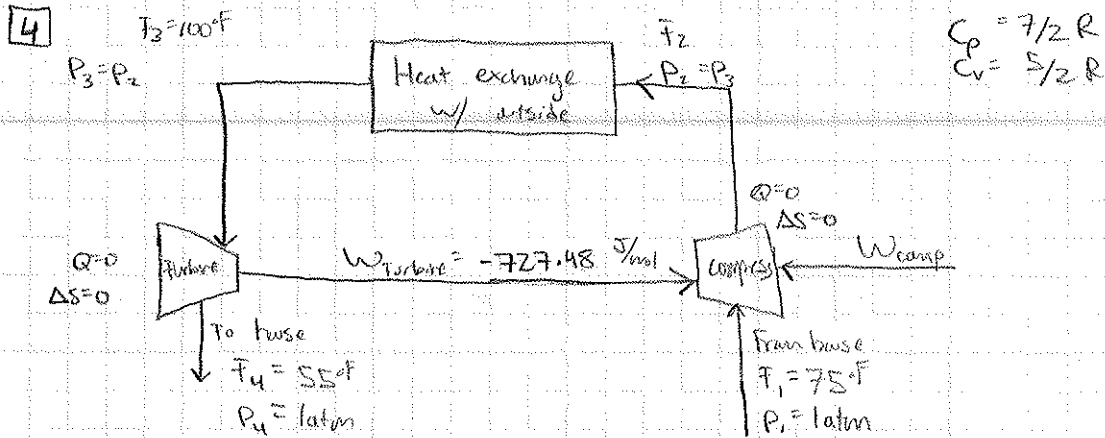 4
T3=100°F
P3=P2
Heat exchange
w/ outside
T2
P2=P3
Cp = 7/2 R
Cv = 5/2 R
Q=0
ΔS=0
Turbine
W Turbine = -727.48 J/mol
Q=0
ΔS=0
compress
Wcomp
To house
T4 = 55°F
P4 = 1atm
From house
T1 = 75°F
P1 = 1atm